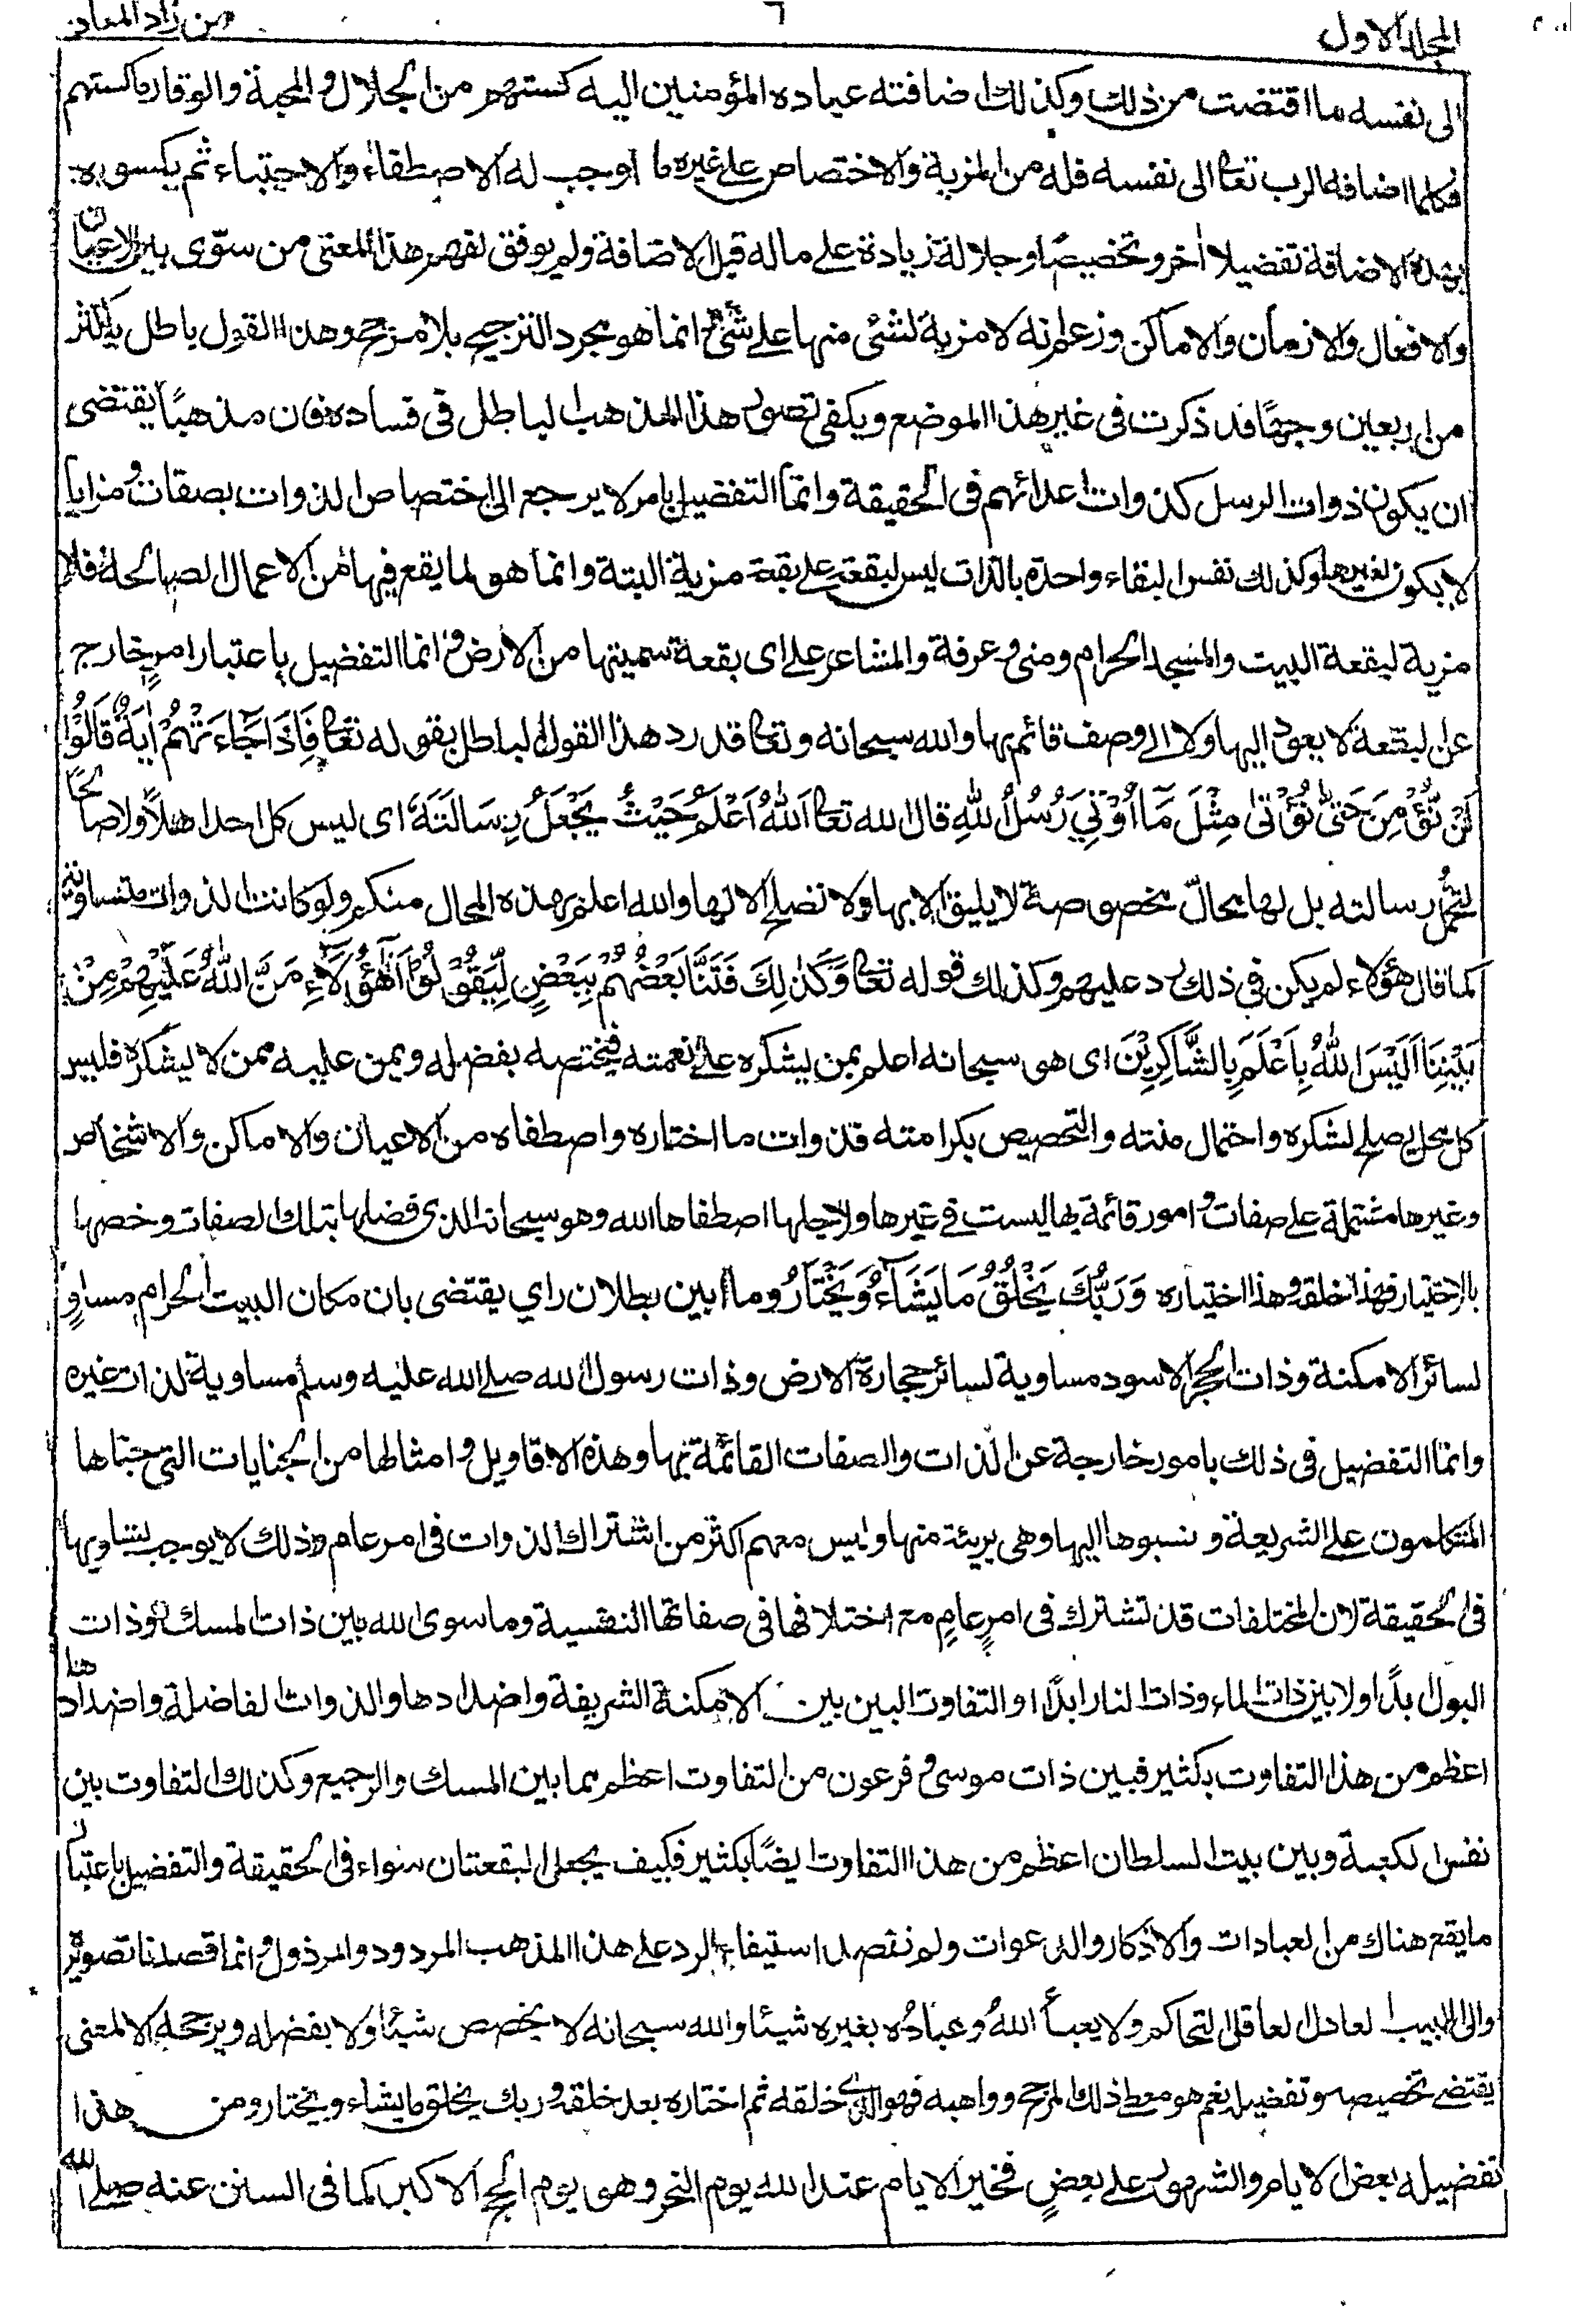 المجلد الاول ٦ من زاد المعاد
الى نفسه ما اقتضت من ذلك وكذلك اضافته عباده المؤمنين اليه كستهم من الجلال والمحبة والوقار ما كستهم
فكلما اضافه الرب تعالى الى نفسه فله من المزية والاختصاص على غيره ما اوجب له الاصطفاء والاجتباء ثم يكسوه
بهذه الاضافة تفضيلا اخر وتخصيصًا وجلالة زيادة على ماله قبل الاضافة ولم يوفق لفهم هذا المعنى من سوّى بين الاعيان
والافعال والازمان والاماكن وزعم انه لا مزية لشئ منها على شئ انما هو مجرد الترجيح بلا مرجح وهذا القول باطل باكثر
من اربعين وجهًا قد ذكرت فى غير هذا الموضع ويكفى تصور هذا المذهب الباطل فى فساده فان مذهبًا يقتضى
ان يكون ذوات الرسل كذوات اعدائهم فى الحقيقة وانما التفضيل بامر لا يرجع الى اختصاص الذوات بصفات ومزايا
لا يكون لغيرها وكذلك نفس البقاء واحدة بالذات ليس لبقعة على بقعة مزية البتة وانما هو لما يقع فيها من الاعمال الصالحة فلا
مزية لبقعة البيت والمسجد الحرام ومنى وعرفة والمشاعر على اى بقعة سميتها من الارض وانما التفضيل باعتبار امر خارج
عن البقعة لا يعود اليها ولا الى وصف قائم بها والله سبحانه وتعالى قد رد هذا القول الباطل بقوله تعالى فَاِذَا جَاءَتْهُمْ اٰيَةٌ قَالُوْا
لَنْ نُّؤْمِنَ حَتّٰى نُؤْتٰى مِثْلَ مَا اُوْتِيَ رُسُلُ اللهِ قال الله تعالى اَللهُ اَعْلَمُ حَيْثُ يَجْعَلُ رِسَالَتَهٗ اى ليس كل احد اهلًا ولا صالحًا
لتحمل رسالته بل لها محالّ مخصوصة لا يليق الا بها ولا تصلح الا لها والله اعلم بهذه المحال منكم ولو كانت الذوات متساوية
كما قال هؤلاء لم يكن فى ذلك رد عليهم وكذلك قوله تعالى وَكَذٰلِكَ فَتَنَّا بَعْضَهُمْ بِبَعْضٍ لِّيَقُوْلُوْا اَهٰؤُلَاءِ مَنَّ اللهُ عَلَيْهِمْ مِنْ
بَيْنِنَا اَلَيْسَ اللهُ بِاَعْلَمَ بِالشَّاكِرِيْنَ اى هو سبحانه اعلم بمن يشكره على نعمته فيختصه بفضله ويمن عليه ممن لا يشكره فليس
كل محل يصلح لشكره واحتمال منته والتخصيص بكرامته فذوات ما اختاره واصطفاه من الاعيان والاماكن والاشخاص
وغيرها مشتملة على صفات وامور قائمة بها ليست فى غيرها ولاجلها اصطفاها الله وهو سبحانه الذى فضلها بتلك الصفات وخصها
بالاختيار فهذا خلقه وهذا اختياره وَرَبُّكَ يَخْلُقُ مَا يَشَاءُ وَيَخْتَارُ وما ابين بطلان راي يقتضى بان مكان البيت الحرام مساوٍ
لسائر الامكنة وذات الحجر الاسود مساوية لسائر حجارة الارض وذات رسول الله صلى الله عليه وسلم مساوية لذات غيره
وانما التفضيل فى ذلك بامور خارجة عن الذات والصفات القائمة بها وهذه الاقاويل وامثالها من الجنايات التى جناها
المتكلمون على الشريعة ونسبوها اليها وهى بريئة منها وليس معهم اكثر من اشتراك الذوات فى امر عام وذلك لا يوجب تساويها
فى الحقيقة لان المختلفات قد تشترك فى امرٍ عامٍ مع اختلافها فى صفاتها النفسية وما سوى الله بين ذات المسك وذات
البول ابدًا ولا بين ذات الماء وذات النار ابدًا والتفاوت البين بين الامكنة الشريفة واضدادها والذوات الفاضلة واضدادها
اعظم من هذا التفاوت بكثير فبين ذات موسى وفرعون من التفاوت اعظم مما بين المسك والرجيع وكذلك التفاوت بين
نفس الكعبة وبين بيت السلطان اعظم من هذا التفاوت ايضًا بكثير فكيف يجعل البقعتان سواء فى الحقيقة والتفضيل باعتبار
ما يقع هناك من العبادات والاذكار والدعوات ولم نقصد استيفاء الرد على هذا المذهب المردود والمرذول وانما قصدنا تصويره
والى اللبيب العادل العاقل التحاكم ولا يعبأ اللهُ وعبادُه بغيره شيئا والله سبحانه لا يخصص شيئا ولا يفضله ويرجحه الا لمعنى
يقتضى تخصيصه وتفضيله نعم هو معطى ذلك المرجح وواهبه فهو الذى خلقه ثم اختاره بعد خلقه وربك يخلق ما يشاء ويختار ومن هذا
تفضيله بعض الايام والشهور على بعضٍ فخير الايام عند الله يوم النحر وهو يوم الحج الاكبر كما فى السنن عنه صلى الله